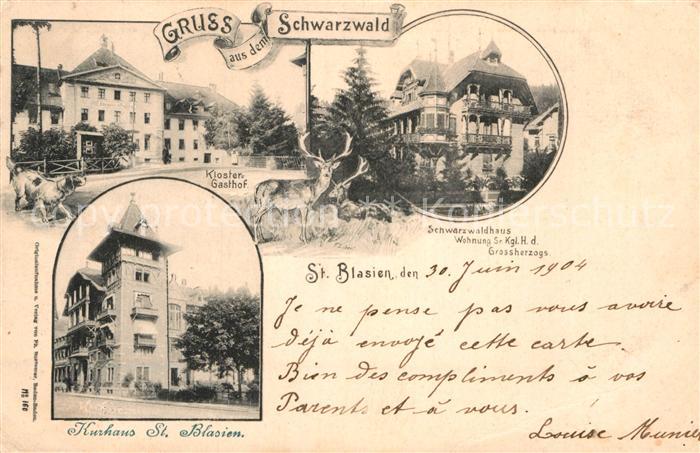 GRUSS
aus dem
Schwarzwald
Kloster-
Gasthof.
Schwarzwaldhaus
Wohnung Sr. Kgl. H. d.
Grossherzogs.
St. Blasien, den 30. Juin 1904
Je ne pense pas vous avoire
déjà envoyé cette carte.
Bien des compliments à vos
Parents et à vous.
Louise Munier
Kurhaus St. Blasien.
Originalaufnahme u. Verlag von Ph. Baden-Baden.
No 160
copyright protection Kopierschutz